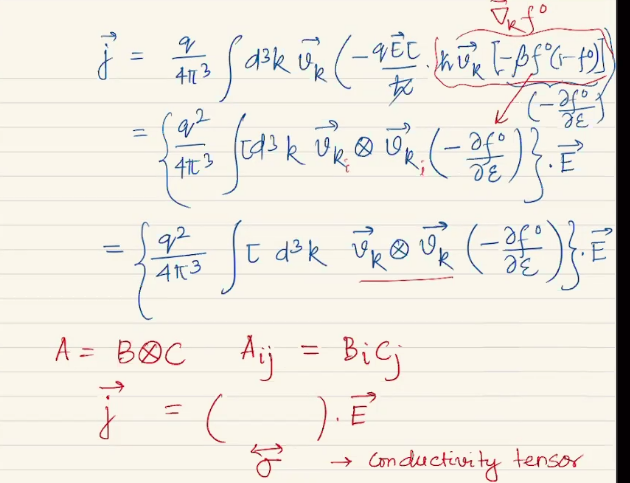 ∇⃗ₖf⁰
j⃗ = q/4π³ ∫ d³k v⃗ₖ (-qE⃗τ/ħ · ħv⃗ₖ [-βf⁰(1-f⁰)]
(-∂f⁰/∂ε)
= { q²/4π³ ∫ τ d³k v⃗ₖᵢ ⊗ v⃗ₖⱼ (-∂f⁰/∂ε) } · E⃗
= { q²/4π³ ∫ τ d³k v⃗ₖ ⊗ v⃗ₖ (-∂f⁰/∂ε) } · E⃗
A = B⊗C Aᵢⱼ = BᵢCⱼ
j⃗ = ( ) · E⃗
σ⃡ → conductivity tensor